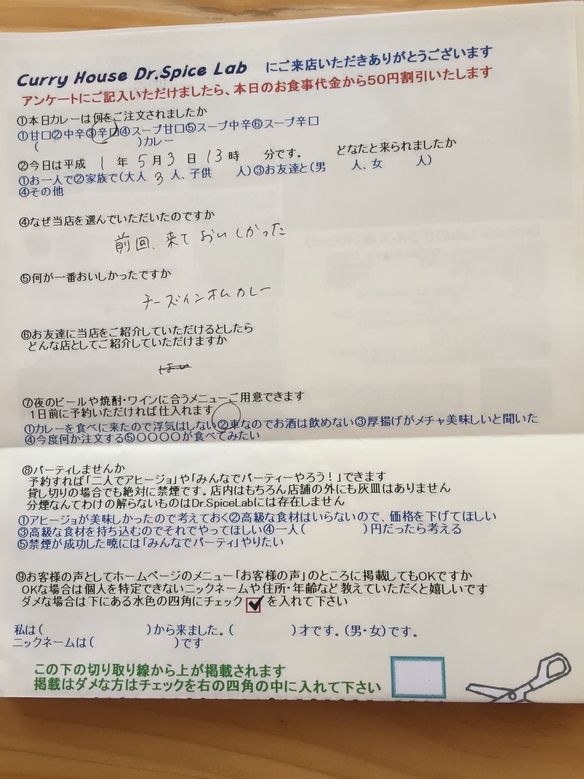 Curry House Dr.Spice Lab にご来店いただきありがとうございます
アンケートにご記入いただけましたら、本日のお食事代金から50円割引いたします
①本日カレーは何をご注文されましたか
①甘口②中辛③辛口④スープ甘口⑤スープ中辛⑥スープ辛口
( )カレー
②今日は平成 1 年 5月 3 日 13時 分です。 どなたと来られましたか
①お一人で②家族で(大人 3 人、子供 人)③お友達と(男 人、女 人)
④その他
④なぜ当店を選んでいただいたのですか
前回、来ておいしかった
⑤何が一番おいしかったですか
チーズインオムカレー
⑥お友達に当店をご紹介していただけるとしたら
どんな店としてご紹介していただけますか
⑦夜のビールや焼酎・ワインに合うメニューご用意できます
1日前に予約いただければ仕入れます
①カレーを食べに来たので浮気はしない②車なのでお酒は飲めない③厚揚げがメチャ美味しいと聞いた
④今度何か注文する⑤〇〇〇〇が食べてみたい
⑧パーティしませんか
予約すれば「二人でアヒージョ」や「みんなでパーティーやろう!」できます
貸し切りの場合でも絶対に禁煙です。店内はもちろん店舗の外にも灰皿はありません
分煙なんてわけの解らないものはDr.SpiceLabには存在しません
①アヒージョが美味しかったので考えておく②高級な食材はいらないので、価格を下げてほしい
③高級な食材を持ち込むのでそれでやってほしい④一人( )円だったら考える
⑤禁煙が成功した暁には「みんなでパーティ」やりたい
⑨お客様の声としてホームページのメニュー「お客様の声」のところに掲載してもOKですか
OKな場合は個人を特定できないニックネームや住所・年齢など教えていただくと嬉しいです
ダメな場合は下にある水色の四角にチェック を入れて下さい
私は( )から来ました。( )才です。(男・女)です。
ニックネームは( )です
この下の切り取り線から上が掲載されます
掲載はダメな方はチェックを右の四角の中に入れて下さい